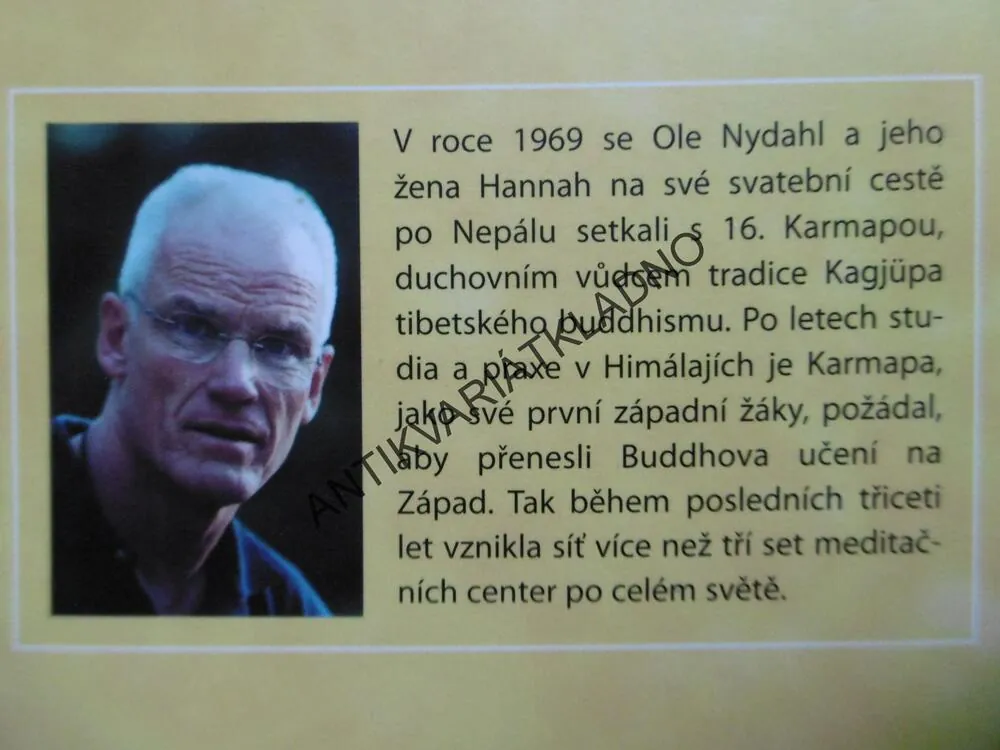 V roce 1969 se Ole Nydahl a jeho
žena Hannah na své svatební cestě
po Nepálu setkali s 16. Karmapou,
duchovním vůdcem tradice Kagjüpa
tibetského buddhismu. Po letech stu-
dia a praxe v Himálajích je Karmapa,
jako své první západní žáky, požádal,
aby přenesli Buddhova učení na
Západ. Tak během posledních třiceti
let vznikla síť více než tří set meditač-
ních center po celém světě.
ANTIKVARIÁTKLADNO